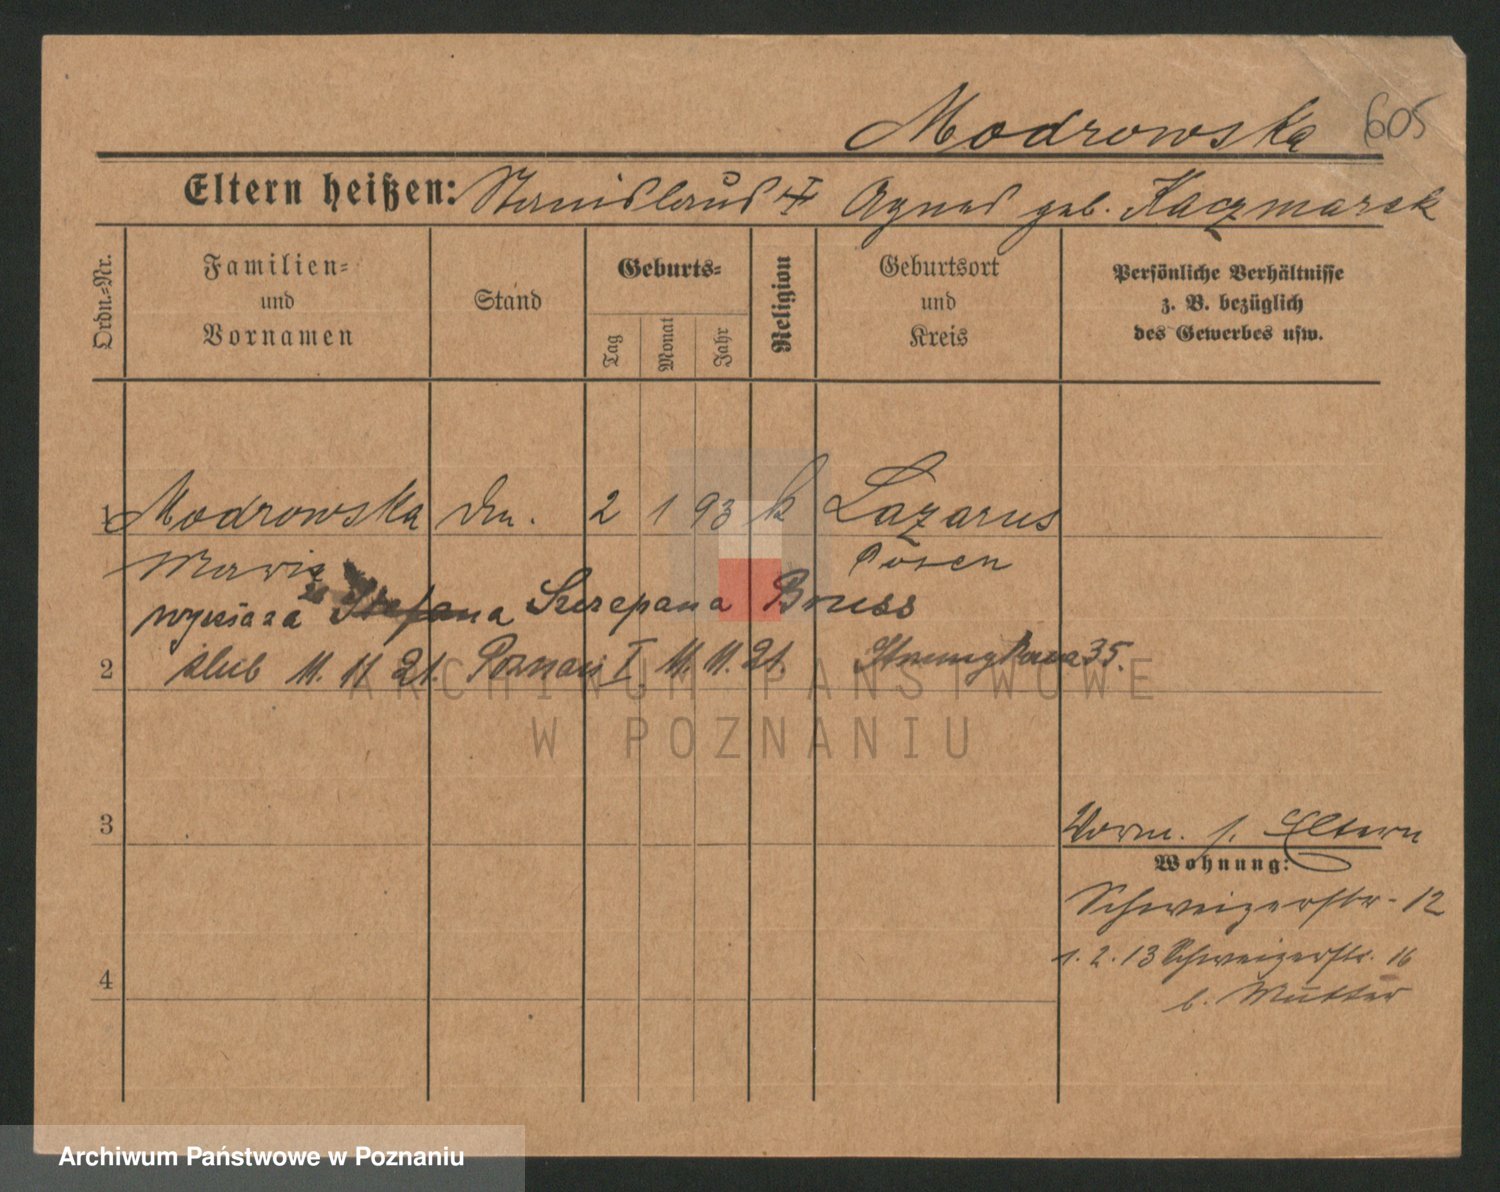 Modrowska 605
Eltern heißen: Stanislaus † Agnes geb. Kaczmarek
Ordn.-Nr.
Familien-
und
Vornamen
Stand
Geburts-
Tag
Monat
Jahr
Religion
Geburtsort
und
Kreis
Persönliche Verhältnisse
z. B. bezüglich
des Gewerbes usw.
1 Modrowska 2 1 93 k Lazarus
Marie Posen
Stefana Szczepana Bruss
2 ślub 11. 11. 21. Poznań I. 11. 11. 21. 35.
ARCHIWUM PAŃSTWOWE
W POZNANIU
3
Vorm. s. Eltern
Wohnung:
Schweizerstr. 12
1. 2. 13 Schweizerstr. 16
4
b. Mutter
Archiwum Państwowe w Poznaniu